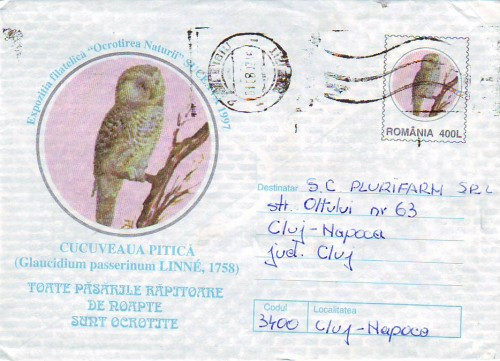 Expoziția filatelică "Ocrotirea Naturii" SUCEAVA 1997
ROMÂNIA 400L
CUCUVEAUA PITICĂ
(Glaucidium passerinum LINNÉ, 1758)
TOATE PĂSĂRILE RĂPITOARE
DE NOAPTE
SUNT OCROTITE
Destinatar S.C PLURIFARM SRL
str. Oltului nr 63
Cluj-Napoca
jud. Cluj
Codul Localitatea
3400 Cluj-Napoca